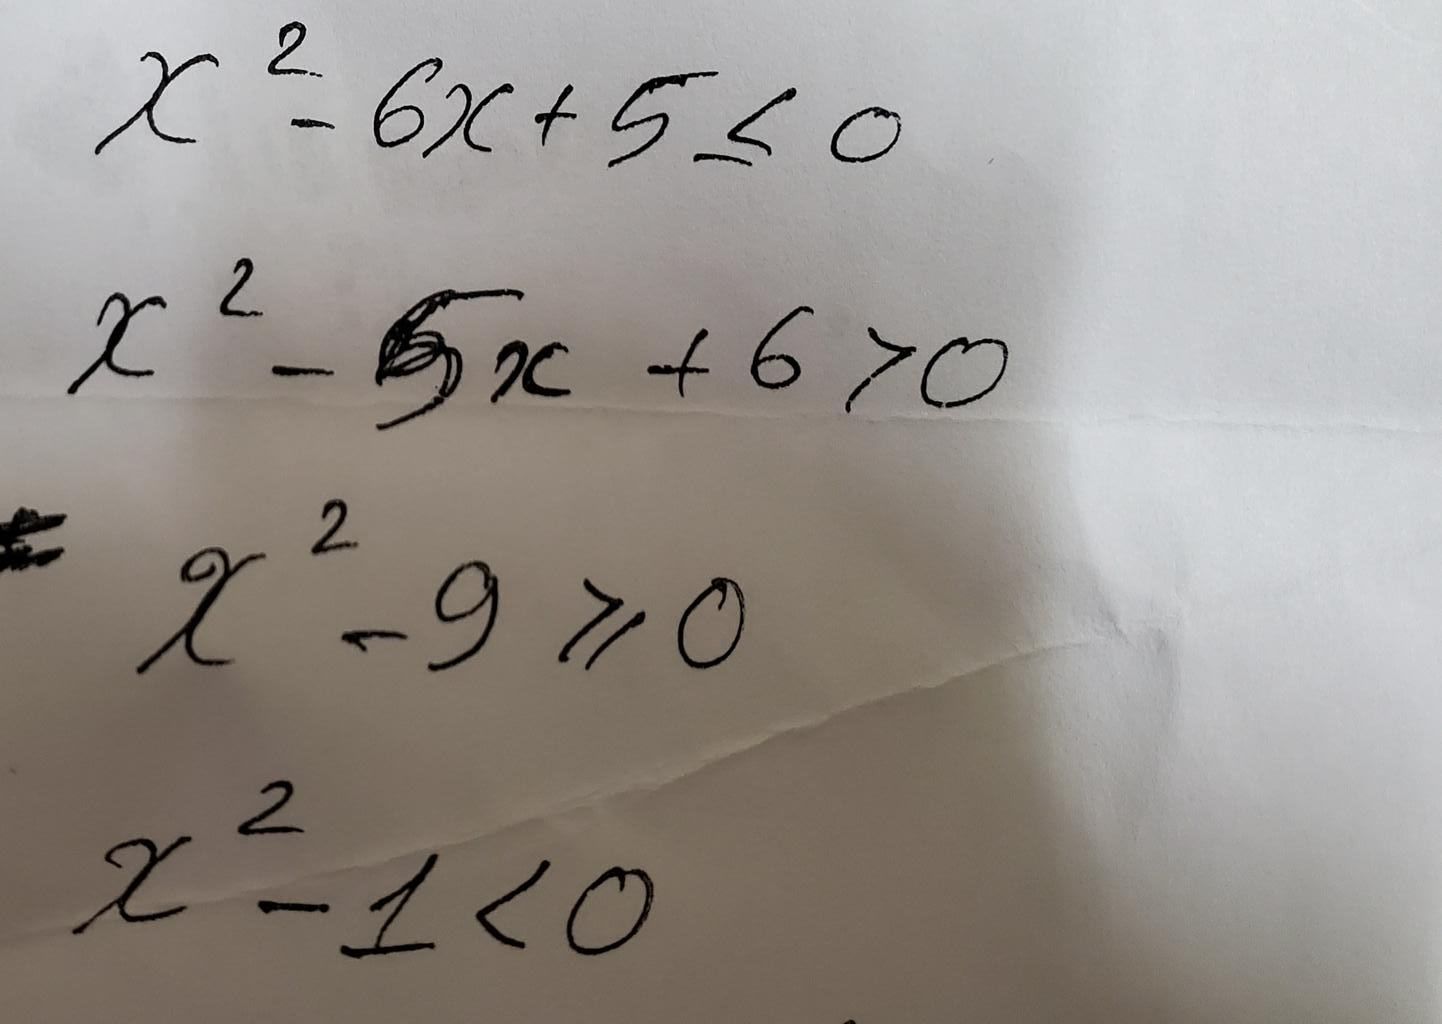 x² - 6x + 5 ≤ 0
x² - 5x + 6 > 0
x² - 9 ⩾ 0
x² - 1 < 0